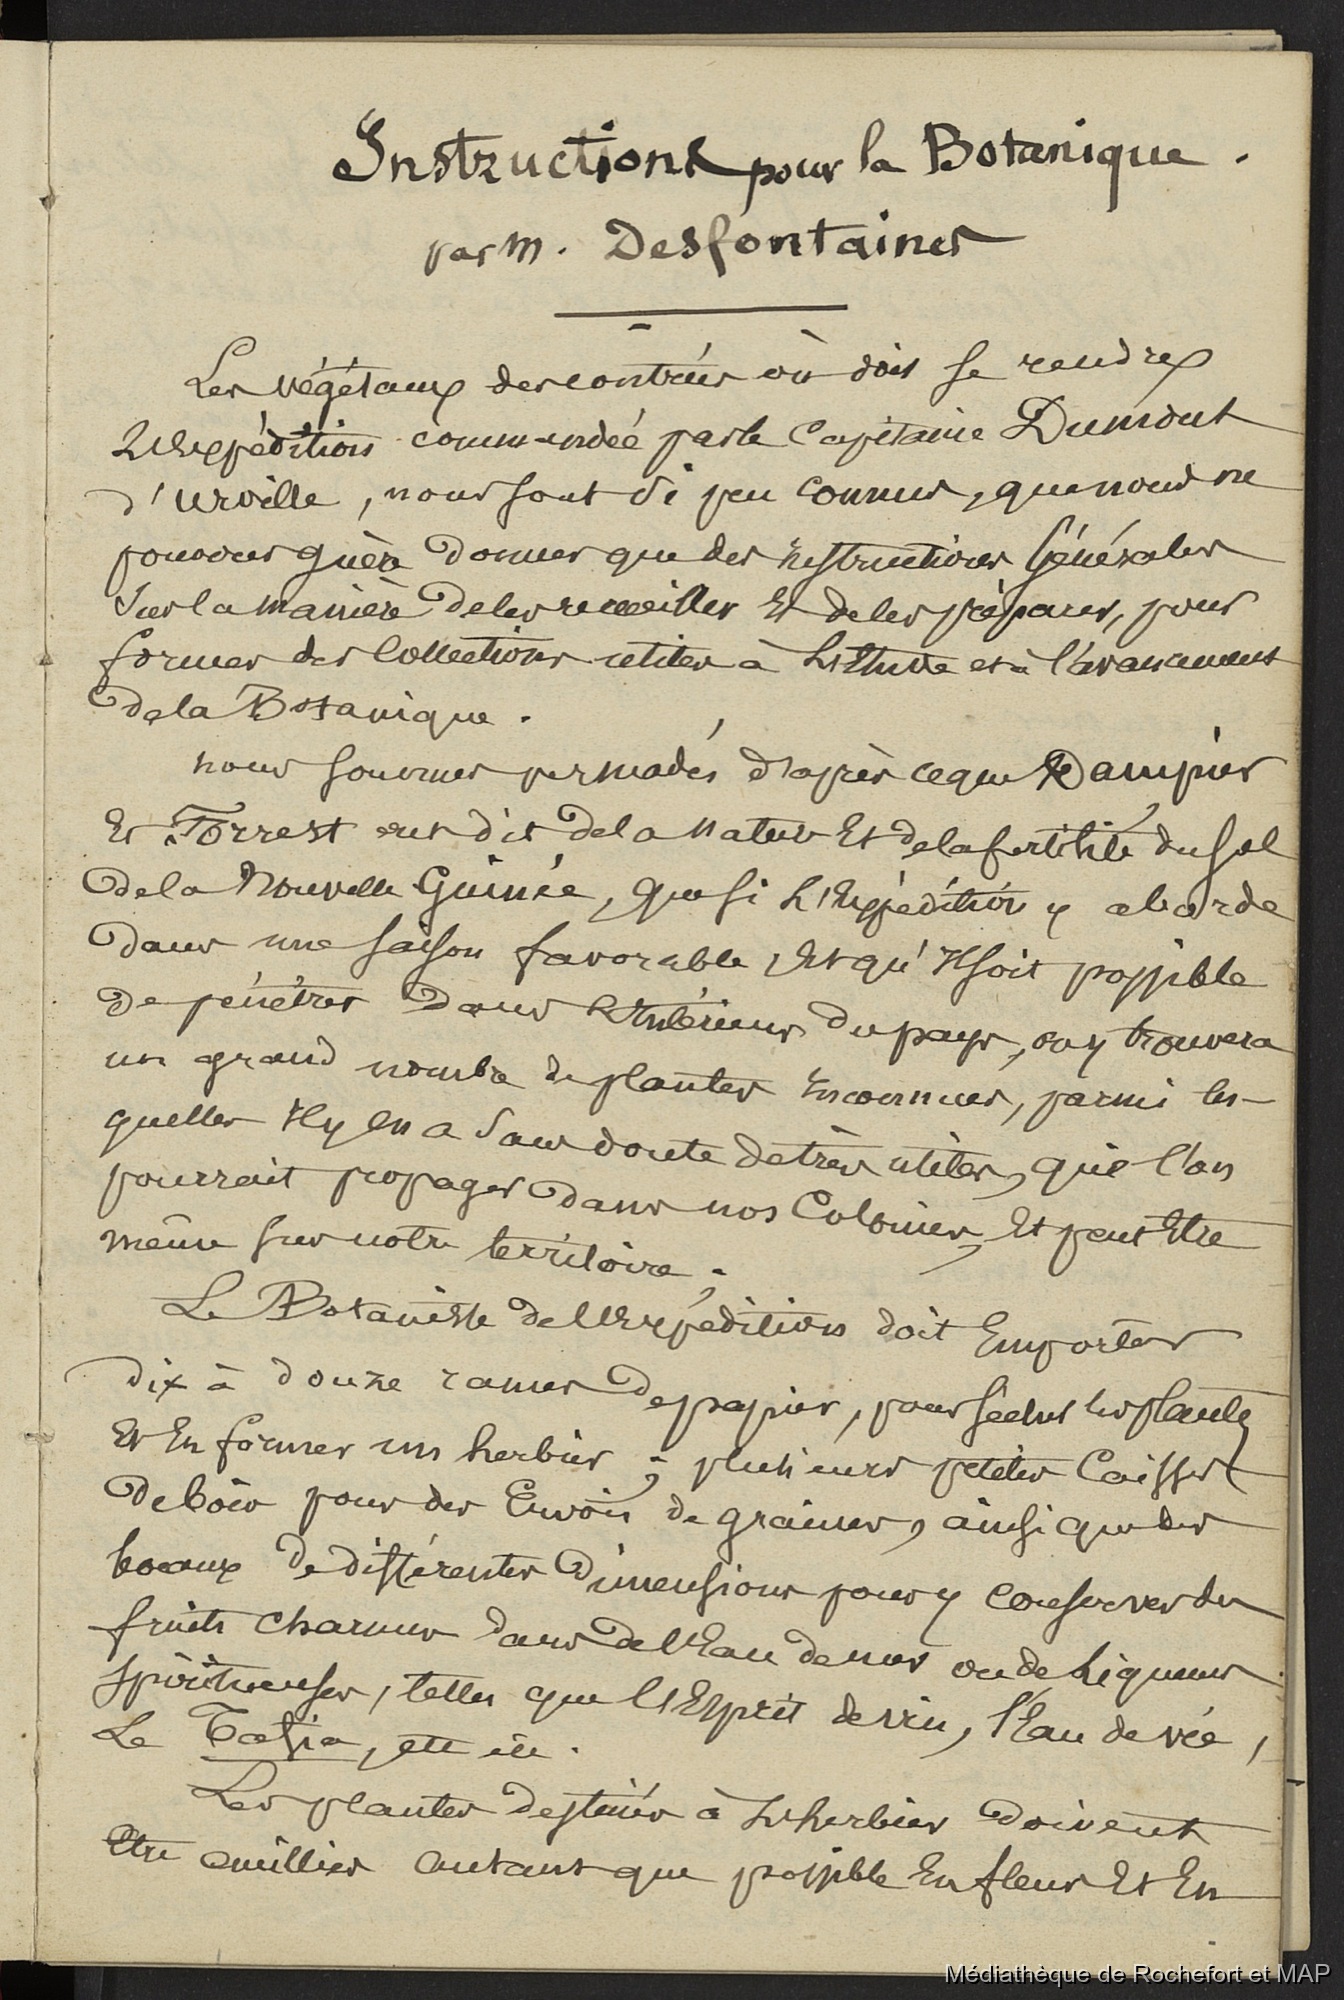 Instructions pour la Botanique.
par M. Desfontaines
Les végétaux des contrées où doit se rendre
L'Expédition commandée par le Capitaine Dumont
d'Urville, nous sont si peu connus, que nous ne
pouvons guère donner que des Instructions Générales
sur la manière de les recueillir Et de les préparer, pour
former des Collections utiles à L'Etude et à l'avancement
de la Botanique.
nous sommes persuadés d'après ce que Dampier
Et Forrest ont dit de la nature Et de la fertilité du Sol
de la Nouvelle Guinée, que si L'Expédition y aborde
dans une saison favorable, Et qu'Il soit possible
de pénétrer dans L'Intérieur du pays, on y trouvera
un grand nombre de plantes Inconnues, parmi les-
quelles Il y En a sans doute de très utiles, que l'on
pourrait propager dans nos Colonies, Et peut Etre
même sur notre territoire.
Le Botaniste de l'Expédition doit Emporter
dix à douze rames de papier, pour sécher les plantes
Et En former un herbier ; plusieurs petites Caisses
de bois pour des Envois de graines, ainsi que des
bocaux de différentes Dimensions pour y conserver des
fruits charnus dans de l'Eau de mer ou de Liqueurs
spiritueuses, telles que l'Esprit de vin, l'Eau de vie,
Le Tafia, etc etc.
Les plantes destinées à L'herbier doivent
Etre cueillies autant que possible En fleur Et En
Médiathèque de Rochefort et MAP